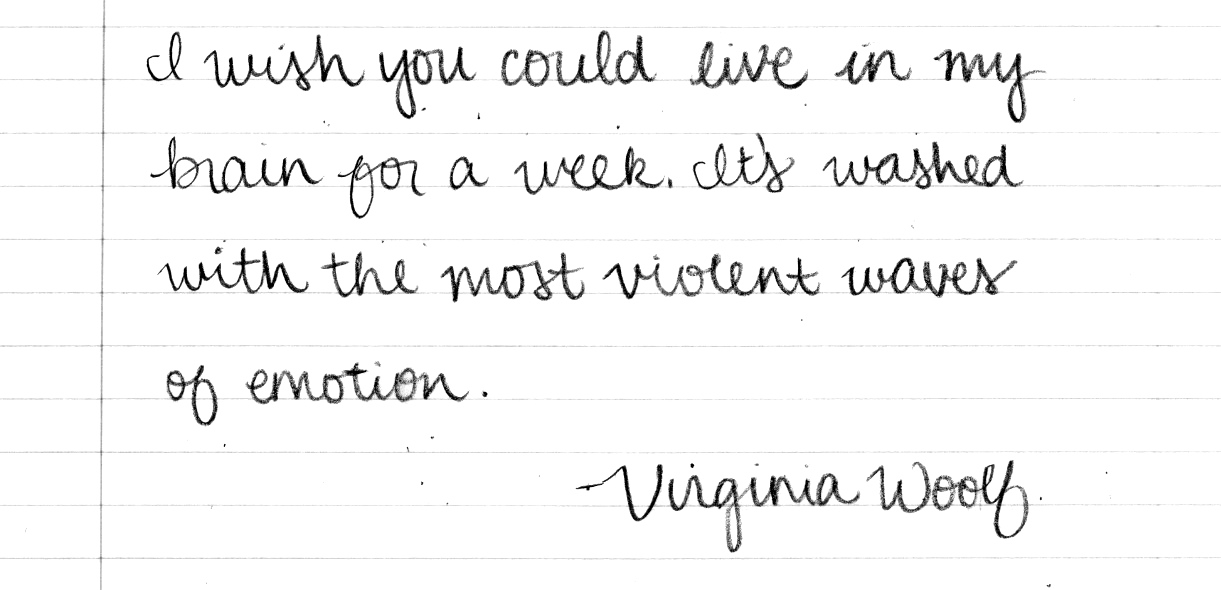 I wish you could live in my
brain for a week. It's washed
with the most violent waves
of emotion.
-Virginia Woolf